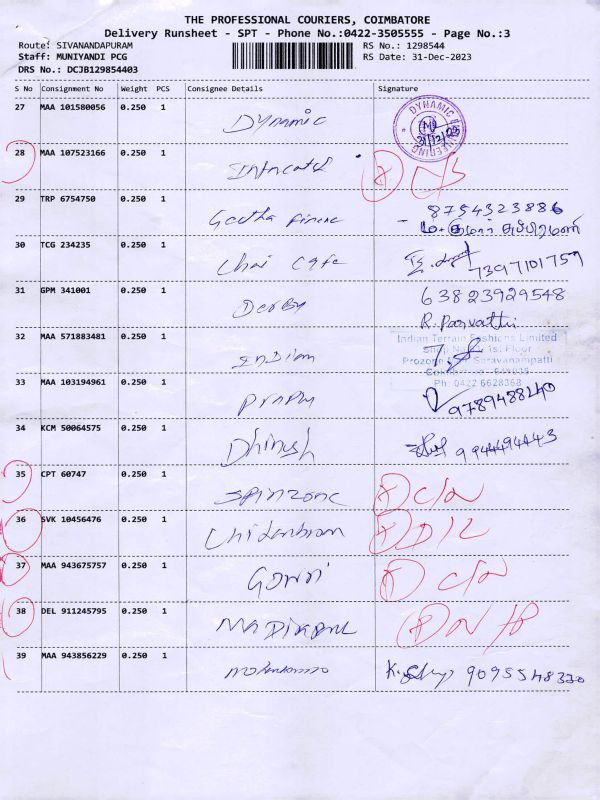 THE PROFESSIONAL COURIERS, COIMBATORE
Delivery Runsheet - SPT - Phone No.:0422-3505555 - Page No.:3
Route: SIVANANDAPURAM
RS No.: 1298544
Staff: MUNIYANDI PCG
RS Date: 31-Dec-2023
DRS No.: DCJB129854403
S No Consignment No Weight PCS Consignee Details Signature
27 MAA 101580056 0.250 1 Dynamic
DYNAMIC ENGINEERING
31/12/23
28 MAA 107523166 0.250 1
29 TRP 6754750 0.250 1 Geetha
8754323886
30 TCG 234235 0.250 1 Chai Cafe
7397101759
31 GPM 341001 0.250 1 Derby
63823929548
R. Parvathi
32 MAA 571883481 0.250 1 Indian
Indian Terrain Fashions Limited
Prozone Saravanampatti
Ph: 0422 6628368
33 MAA 103194961 0.250 1
9789488240
34 KCM 50064575 0.250 1 Dhinesh
9944494443
35 CPT 60747 0.250 1 Spinzone
C/N
36 SVK 10456476 0.250 1
D/L
37 MAA 943675757 0.250 1 Gowri
C/N
38 DEL 911245795 0.250 1
39 MAA 943856229 0.250 1
9095548330